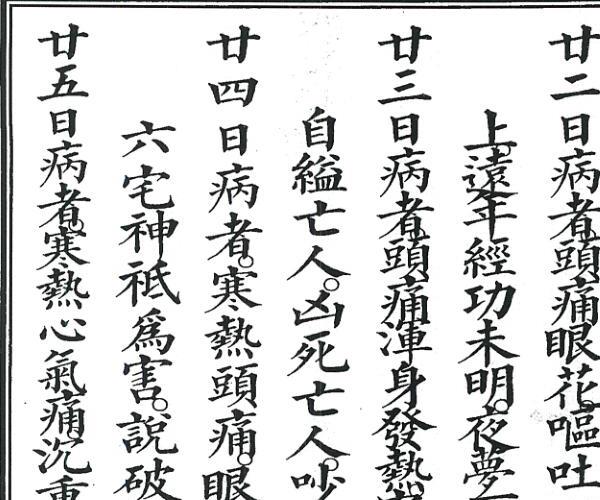 廿二日病者頭痛眼花。嘔吐
上。遠年經功未明。夜夢
廿三日病者頭痛渾身發熱
自縊亡人。凶死亡人。吵
廿四日病者。寒熱頭痛。眼
六宅神祗為害。說破
廿五日病者。寒熱心氣痛。沉重